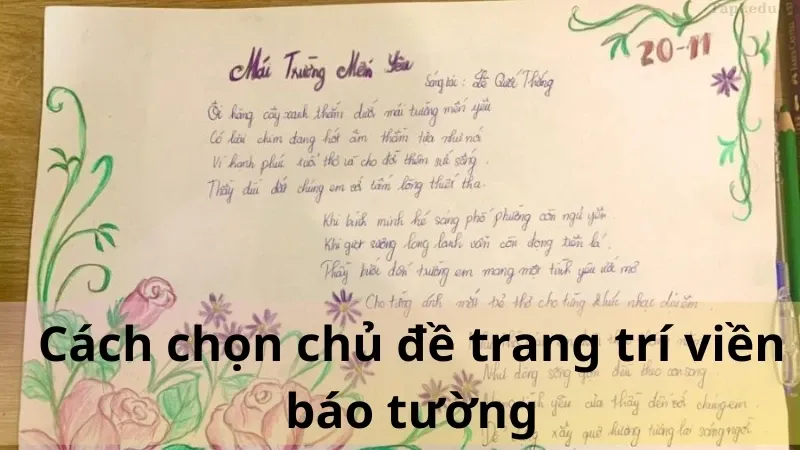 20-11
Mái Trường Mến Yêu
Sáng tác : Lê Quốc Thắng
Ôi hàng cây xanh thắm dưới mái trường mến yêu
Có loài chim đang hót âm thầm tựa như nói
Vì hạnh phúc tuổi thơ và cho đời thêm sức sống.
Thầy dìu dắt chúng em với tấm lòng thiết tha.
Khi bình minh hé sáng phố phường còn ngủ yên.
Khi giọt sương long lanh vẫn còn đọng trên lá.
Thầy bước đến trường em mang một tình yêu ước mơ
Cho từng ánh mắt trẻ thơ cho từng khúc nhạc dịu êm.
Cách chọn chủ đề trang trí viền
báo tường
Như dòng sông đều theo
tình yêu của thầy đến với chúng em.
xây quê hương tương lai sáng ngời